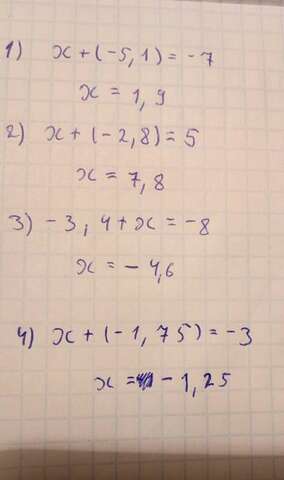 1) x + (-5,1) = -7
x = 1,9
2) x + (-2,8) = 5
x = 7,8
3) -3,4 + x = -8
x = -4,6
4) x + (-1,75) = -3
x = -1,25